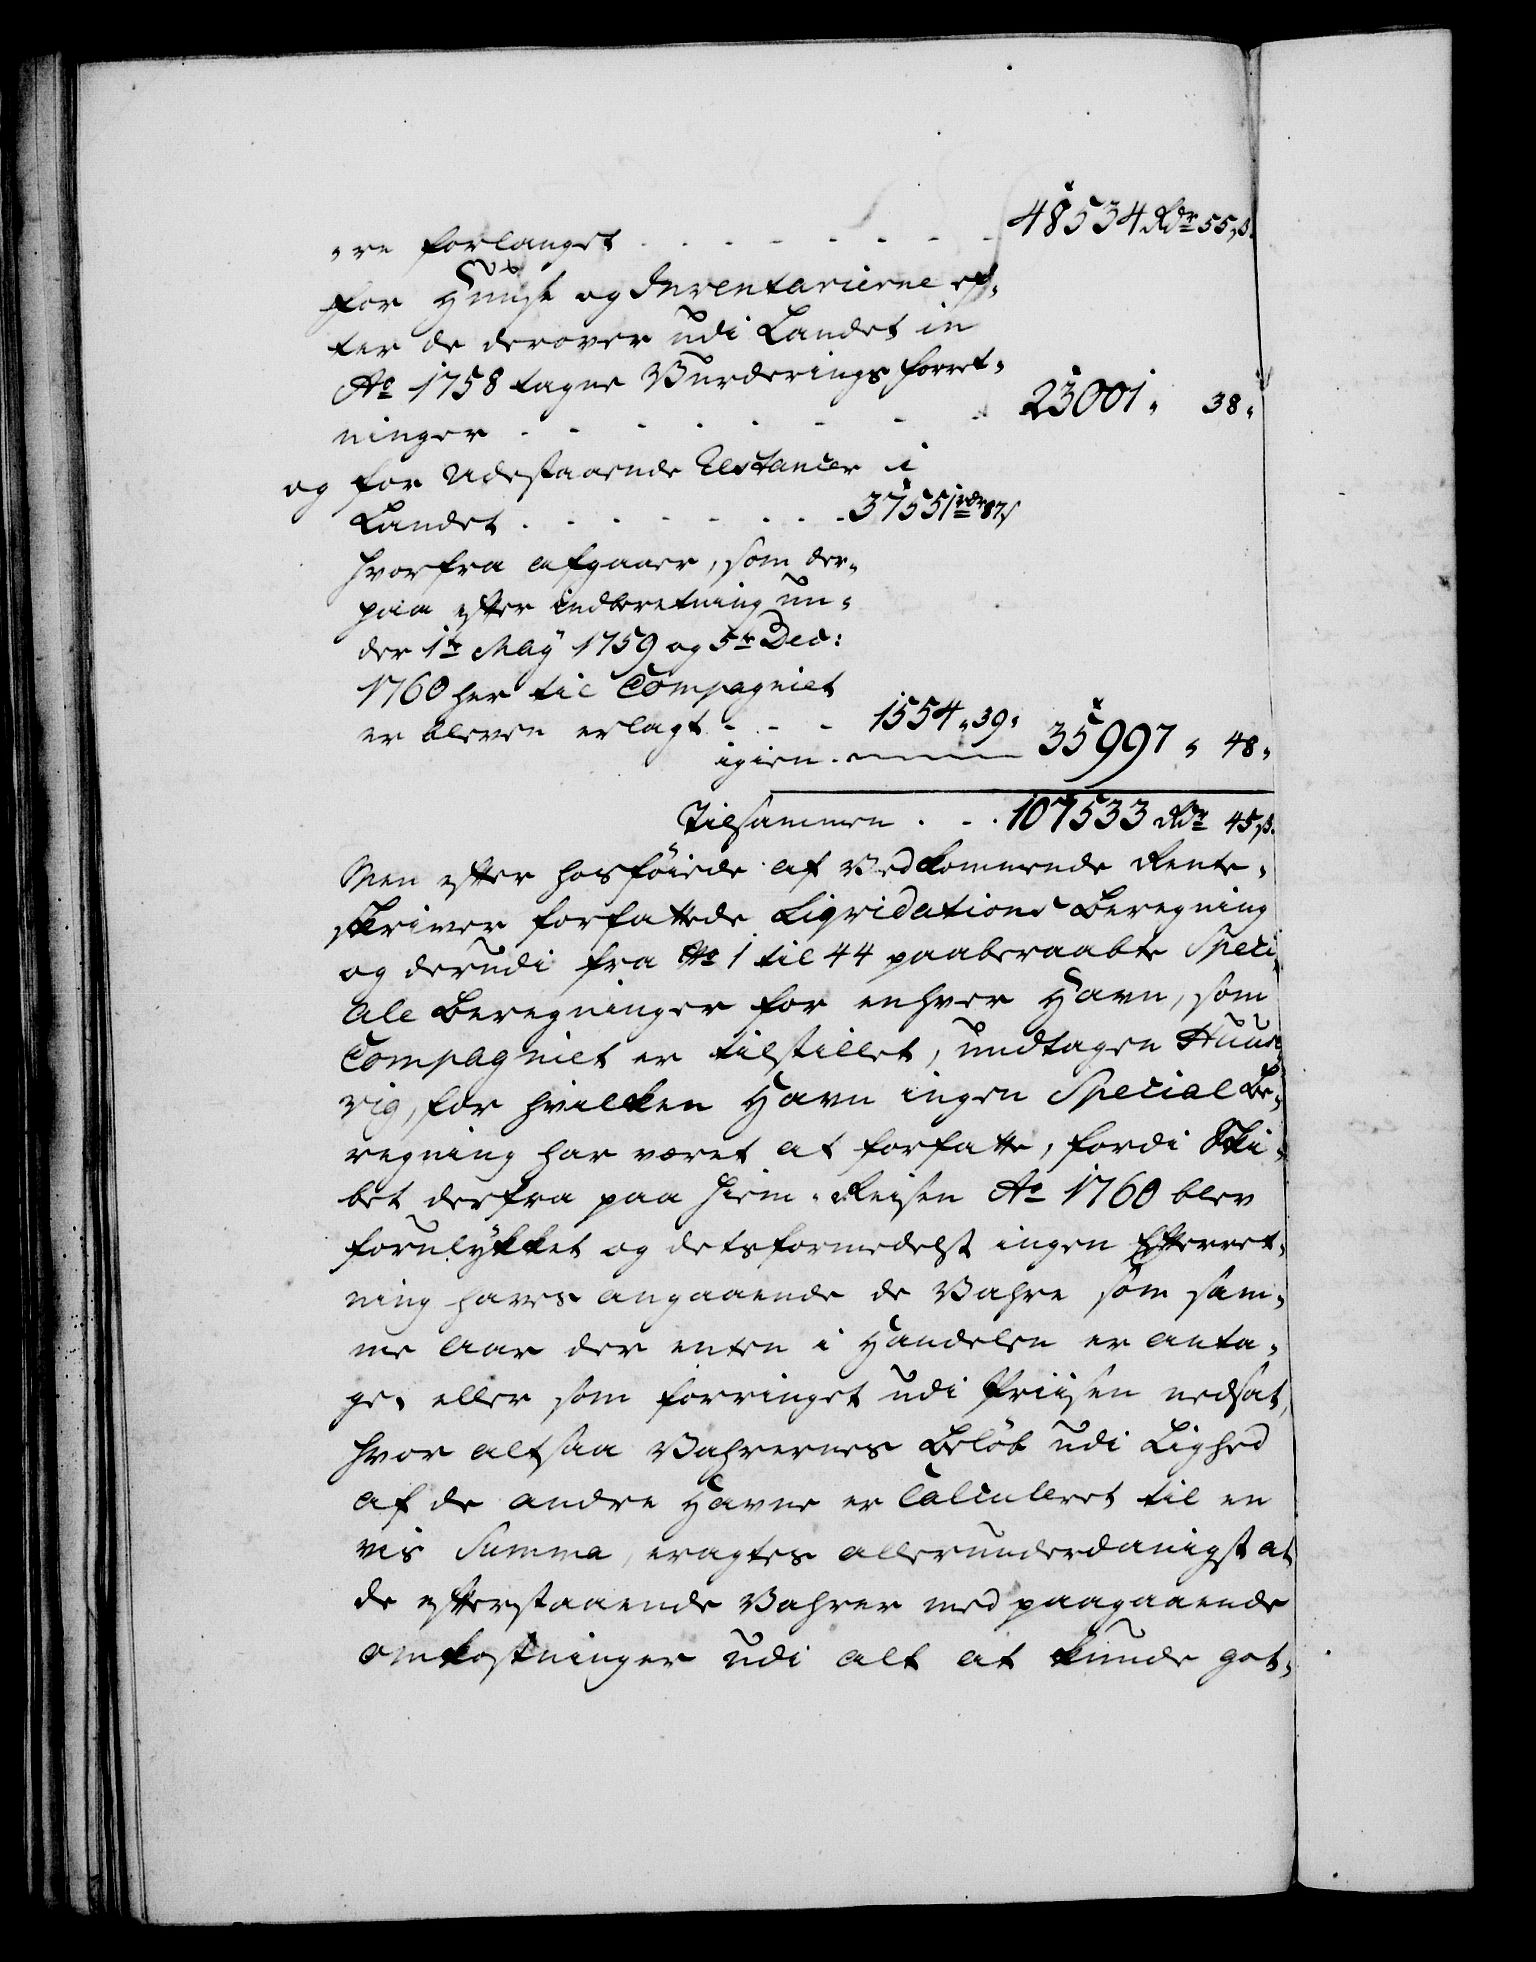 „re forlanget . . . . . . . . . 48534 Rdr 55 ß.
for Huuse og Inventarierne ef„
ter de derover udi Landet in
Ao 1758 tagne Vurderings forret„
ninger . . . . . . . . 23001 „ 38 „
og for Udestaaende Restancer i
Landet . . . . . . . . 37551 rdr 87 ß
hvorfra afgaaer, som der„
paa efter indberetning un„
der 1te May 1759 og 5te Dec:
1760 her til Compagniet
er bleven erlagt . . . 1554 „ 39 „
igien . 35997 „ 48 „
Tilsammen . . . 107533 Rdr 45 ß.
Men efter hosföiede af Vedkommende Rente„
skriver forfattede Liqvidations Beregning
og derudi fra No 1 til 44 paaberaabte Speci
ale Beregninger for enhver Havn, som
Compagniet er tilstillet, undtagen Huuse
vig, for hvilken Havn ingen Special Be„
regning har været at forfatte, fordi Ski„
bet derfra paa Hiem„Reisen Ao 1760 blev
forulykket og detsformedelst ingen Efterret„
ning haves angaaende de Vahre som sam„
me Aar der enten i Handelen er anta„
ge, eller som forringet udi Priisen nedsat,
hvor altsaa Vahrernes Belöb udi Lighed
af de andre Havne er Calculeret til en
vis Summa, eragtes allerunderdanigst at
de efterstaaende Vahrer med paagaaende
omkostninger udi alt at kunde got„